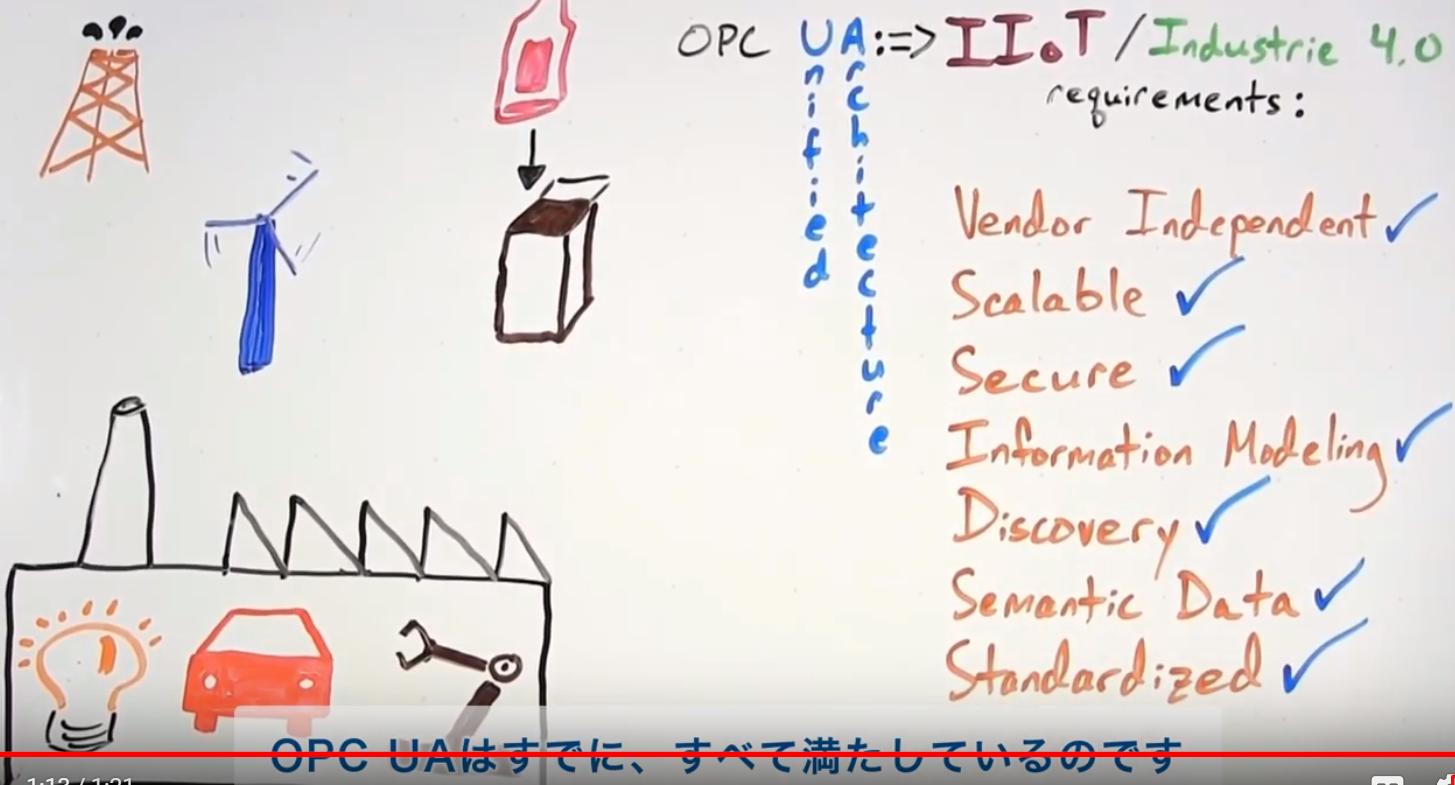 OPC UA:=> IIoT/Industrie 4.0
requirements:
Unified
Architecture
Vendor Independent ✓
Scalable ✓
Secure ✓
Information Modeling ✓
Discovery ✓
Semantic Data ✓
Standardized ✓
OPC UAはすでに、すべて満たしているのです
1:12 / 1:21